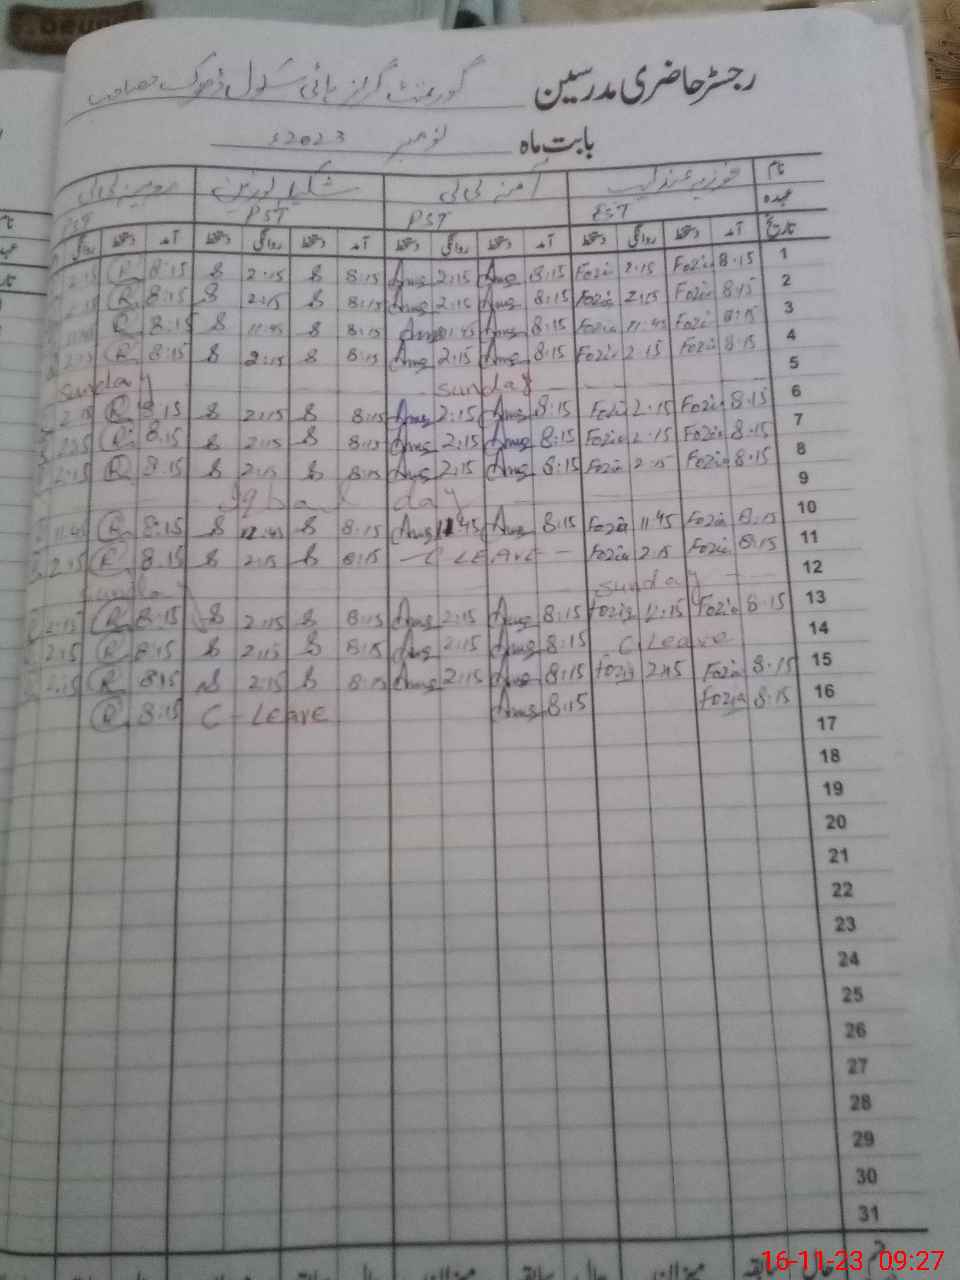 رجسٹر حاضری مدرسین گورنمنٹ گرلز ہائی سکول
بابت ماہ نومبر 2023ء
نام فوزیہ عندلیب آمنہ بی بی
عہدہ EST PST PST PST
تاریخ آمد دستخط روانگی دستخط آمد دستخط روانگی دستخط آمد دستخط روانگی دستخط آمد دستخط روانگی
1 8:15 Fozia 2:15 Fozia 8:15 Amg 2:15 Amg 8:15 S 2:15 S 8:15 R 2:15
2 8:15 Fozia 2:15 Fozia 8:15 Amg 2:15 Amg 8:15 S 2:15 S 8:15 R 2:15
3 8:15 Fozia 11:45 Fozia 8:15 Amg 11:45 Amg 8:15 S 11:45 S 8:15 R 11:45
4 8:15 Fozia 2:15 Fozia 8:15 Amg 2:15 Amg 8:15 S 2:15 S 8:15 R 2:15
5 sunday sunday
6 8:15 Fozia 2:15 Fozia 8:15 Amg 2:15 Amg 8:15 S 2:15 S 8:15 R 2:15
7 8:15 Fozia 2:15 Fozia 8:15 Amg 2:15 Amg 8:15 S 2:15 S 8:15 R 2:15
8 8:15 Fozia 2:15 Fozia 8:15 Amg 2:15 Amg 8:15 S 2:15 S 8:15 R 2:15
9 Iqbal day
10 8:15 Fozia 11:45 Fozia 8:15 Amg 11:45 Amg 8:15 S 12:45 S 8:15 R 11:45
11 8:15 Fozia 2:15 Fozia C LEAVE 8:15 S 2:15 S 8:15 R 2:15
12 sunday sunday
13 8:15 Fozia 12:15 Fozia 8:15 Amg 2:15 Amg 8:15 S 2:15 S 8:15 R 2:15
14 C Leave 8:15 Amg 2:15 Amg 8:15 S 2:15 S 8:15 R 2:15
15 8:15 Fozia 2:45 Fozia 8:15 Amg 2:15 Amg 8:15 S 2:15 S 8:15 R 2:15
16 8:15 Fozia 8:15 Amg C - Leave 8:15 R
17
18
19
20
21
22
23
24
25
26
27
28
29
30
31
16-11-23 09:27